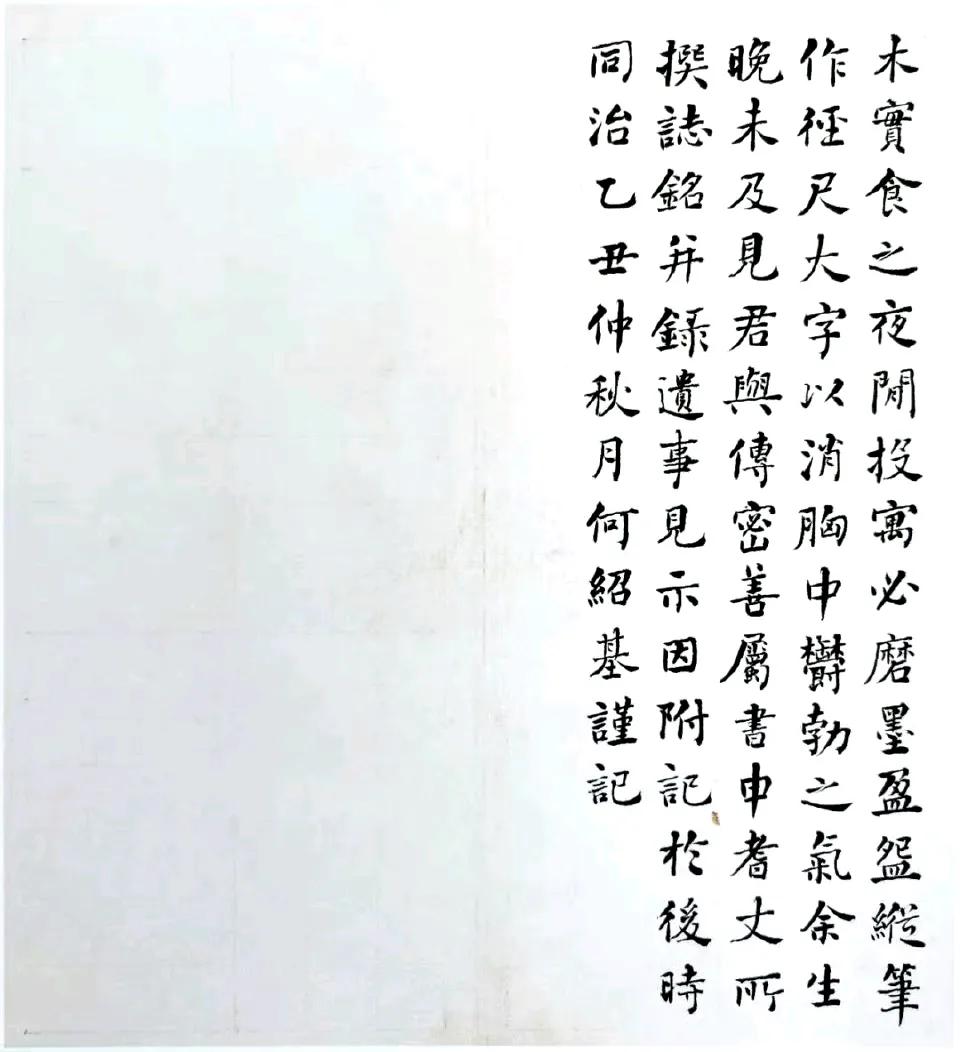 木實食之夜閒投寓必磨墨盈盌縱筆
作徑尺大字以消胸中鬱勃之氣余生
晚未及見君與傳密善屬書申耆丈所
撰誌銘并錄遺事見示因附記於後時
同治乙丑仲秋月何紹基謹記